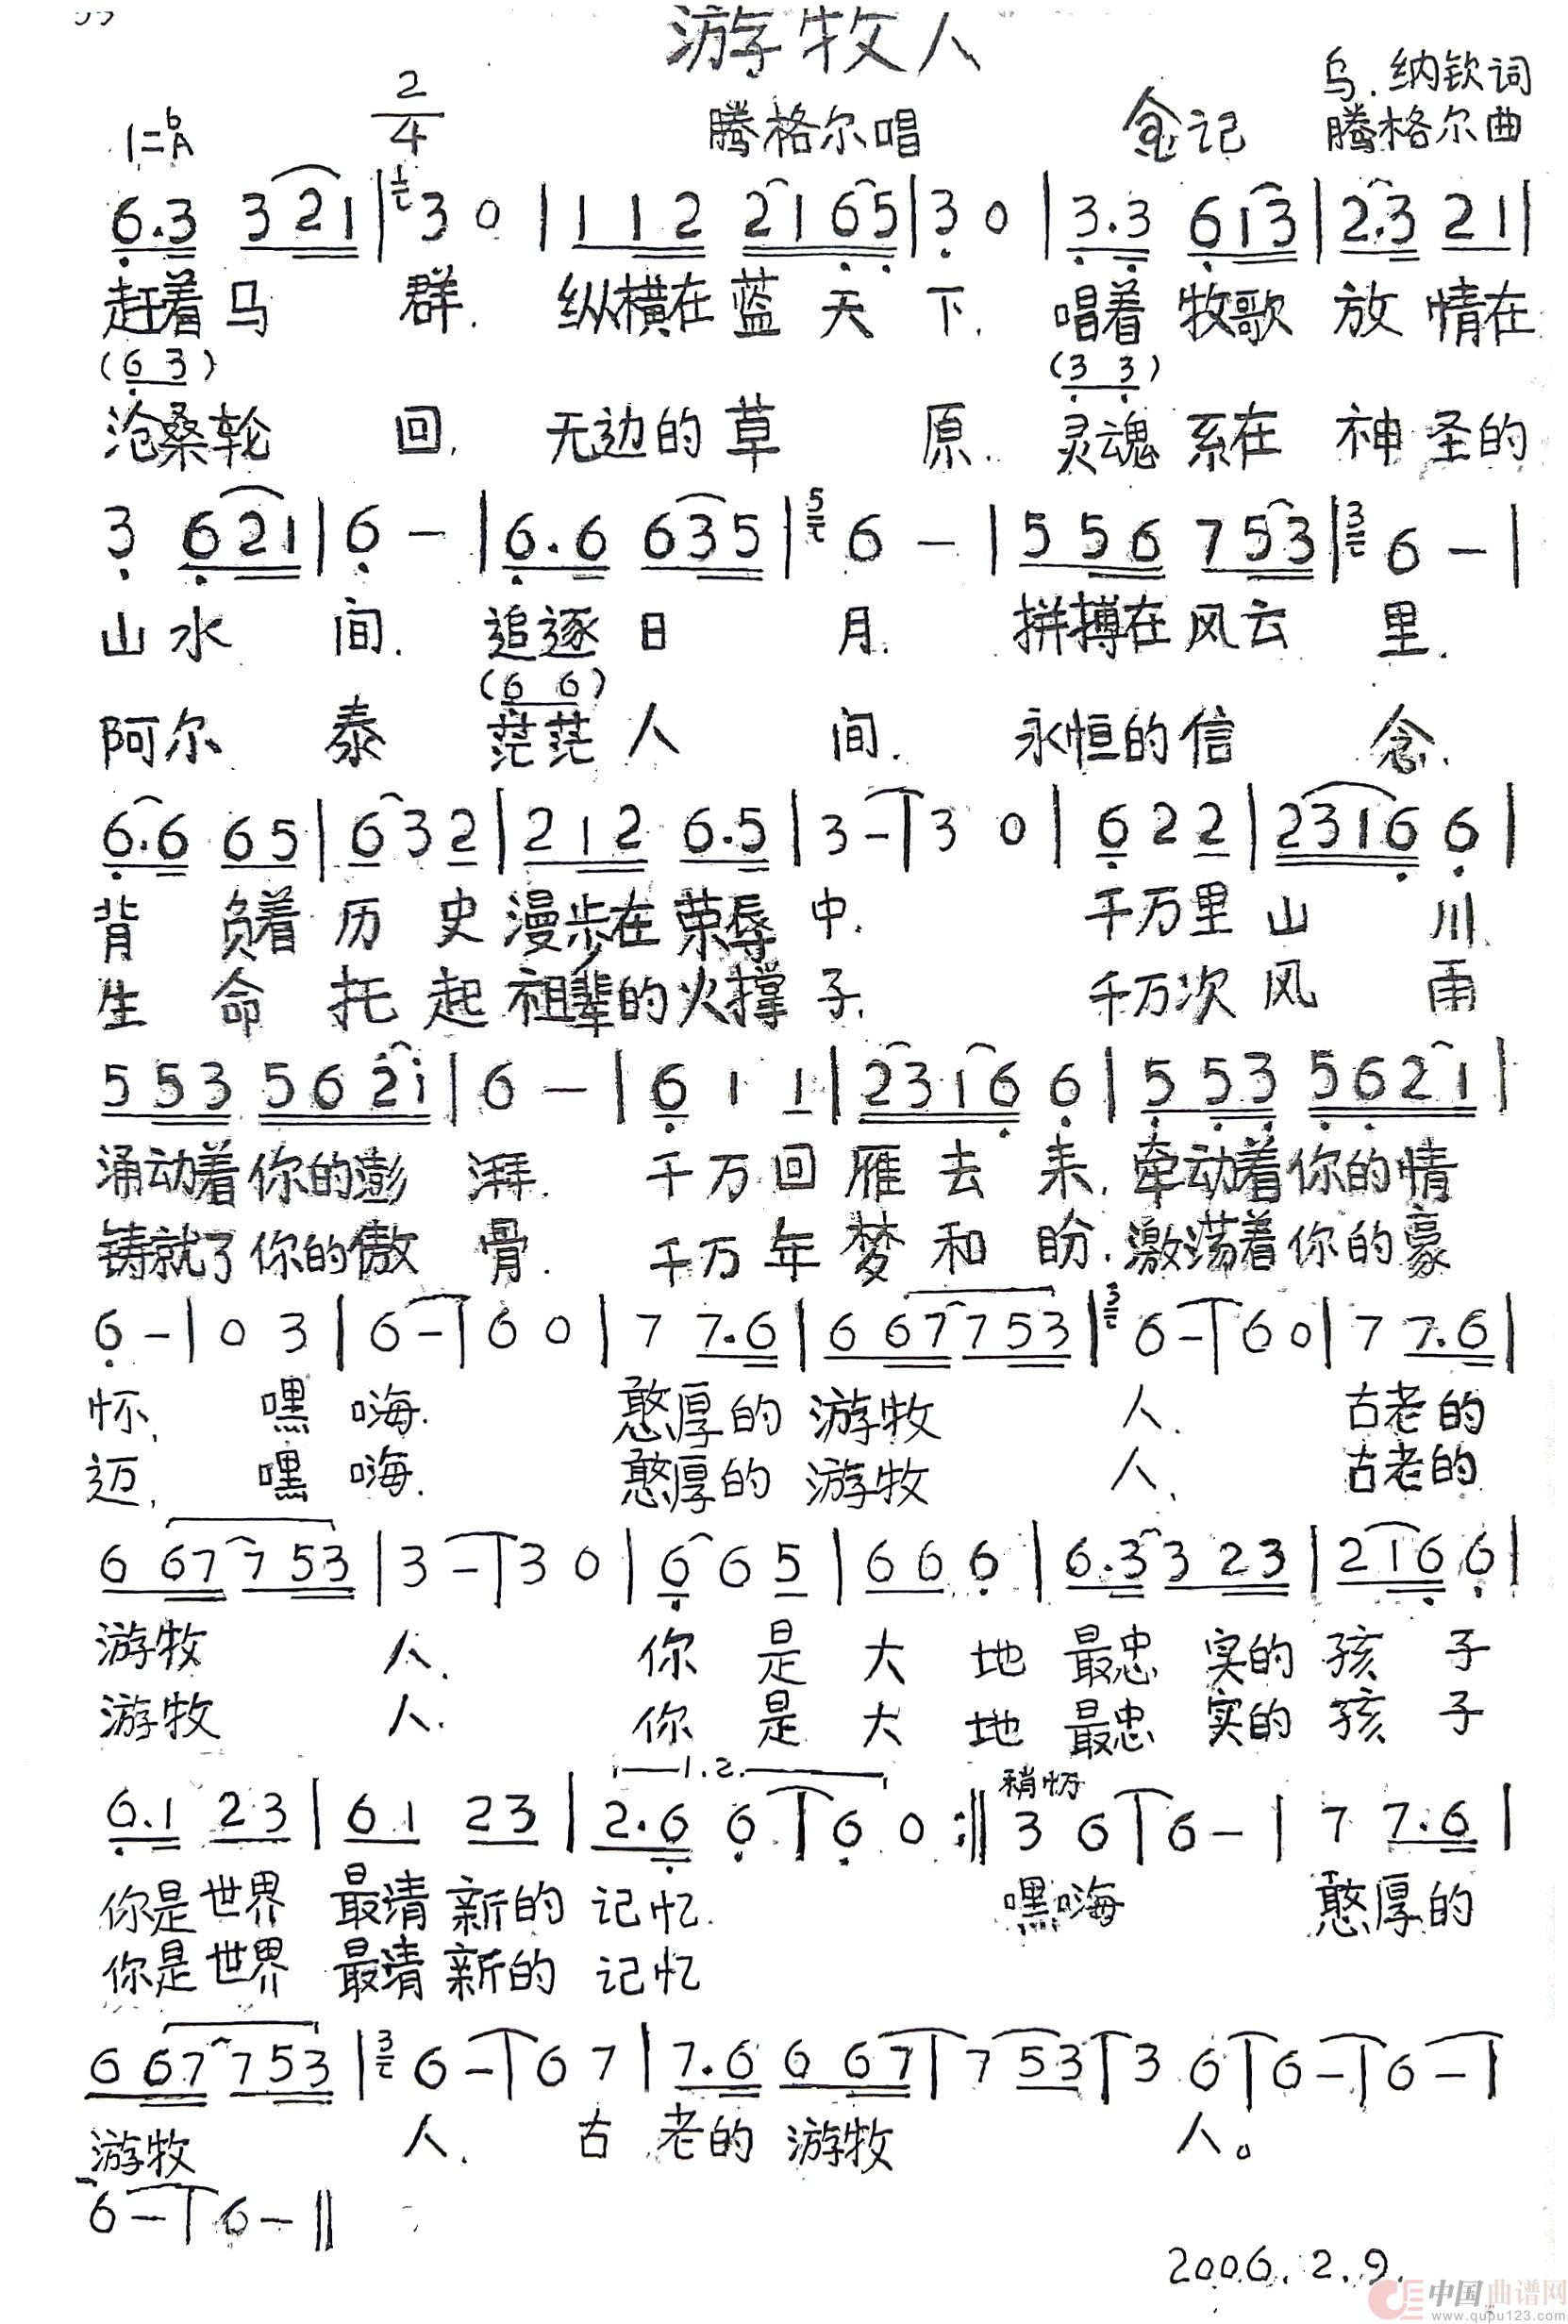 游牧人
1=bA 2/4 腾格尔唱 金记 乌.纳钦词
腾格尔曲
6.3 3 2 1 | 3 0 | 1 1 2 2 1 6 5 | 3 0 | 3.3 6 1 3 | 2.3 2 1 |
赶着马 群. 纵横在蓝 天 下. 唱着 牧歌 放 情在
(6 3) (3 3)
沧桑轮 回. 无边的草 原. 灵魂 系在 神 圣的
3 6 2 1 | 6 - | 6.6 6 3 5 | 5 6 - | 5 5 6 7 5 3 | 3 6 - |
山 水 间. 追逐 日 月. 拼搏在风云 里.
(6 6)
阿尔 泰 茫茫 人 间. 永恒的信 念.
6.6 6 5 | 6 3 2 | 2 1 2 6.5 | 3 - | 3 0 | 6 2 2 | 2 3 1 6 6 |
背 负着 历 史 漫步在荣辱 中. 千万里 山 川
生 命 托 起 祖辈的火撑 子. 千万次 风 雨
5 5 3 5 6 2 1 | 6 - | 6 1 1 | 2 3 1 6 6 | 5 5 3 5 6 2 1 |
涌动着你的澎 湃. 千万回 雁 去 来, 牵动着你的情
铸就了你的傲 骨. 千万年 梦 和 盼. 激荡着你的豪
6 - | 0 3 | 6 - | 6 0 | 7 7.6 | 6 6 7 7 5 3 | 3 6 - | 6 0 | 7 7.6 |
怀, 嘿 嗨. 憨厚的 游牧 人. 古老的
迈, 嘿 嗨. 憨厚的 游牧 人. 古老的
6 6 7 7 5 3 | 3 - | 3 0 | 6 6 5 | 6 6 6 | 6.3 3 2 3 | 2 1 6 6 |
游牧 人. 你 是 大 地 最忠 实的 孩 子
游牧 人. 你 是 大 地 最忠 实的 孩 子
1.2. 稍慢
6.1 2 3 | 6 1 2 3 | 2.6 6 | 6 0 :‖ 3 6 | 6 - | 7 7.6 |
你是世界 最清 新的 记忆. 嘿嗨 憨厚的
你是世界 最清 新的 记忆
6 6 7 7 5 3 | 3 6 - | 6 7 | 7.6 6 6 7 | 7 5 3 | 3 6 | 6 - | 6 - |
游牧 人. 古 老的 游牧 人。
6 - | 6 - ‖
2006.2.9.
中国曲谱网
www.qupu123.com